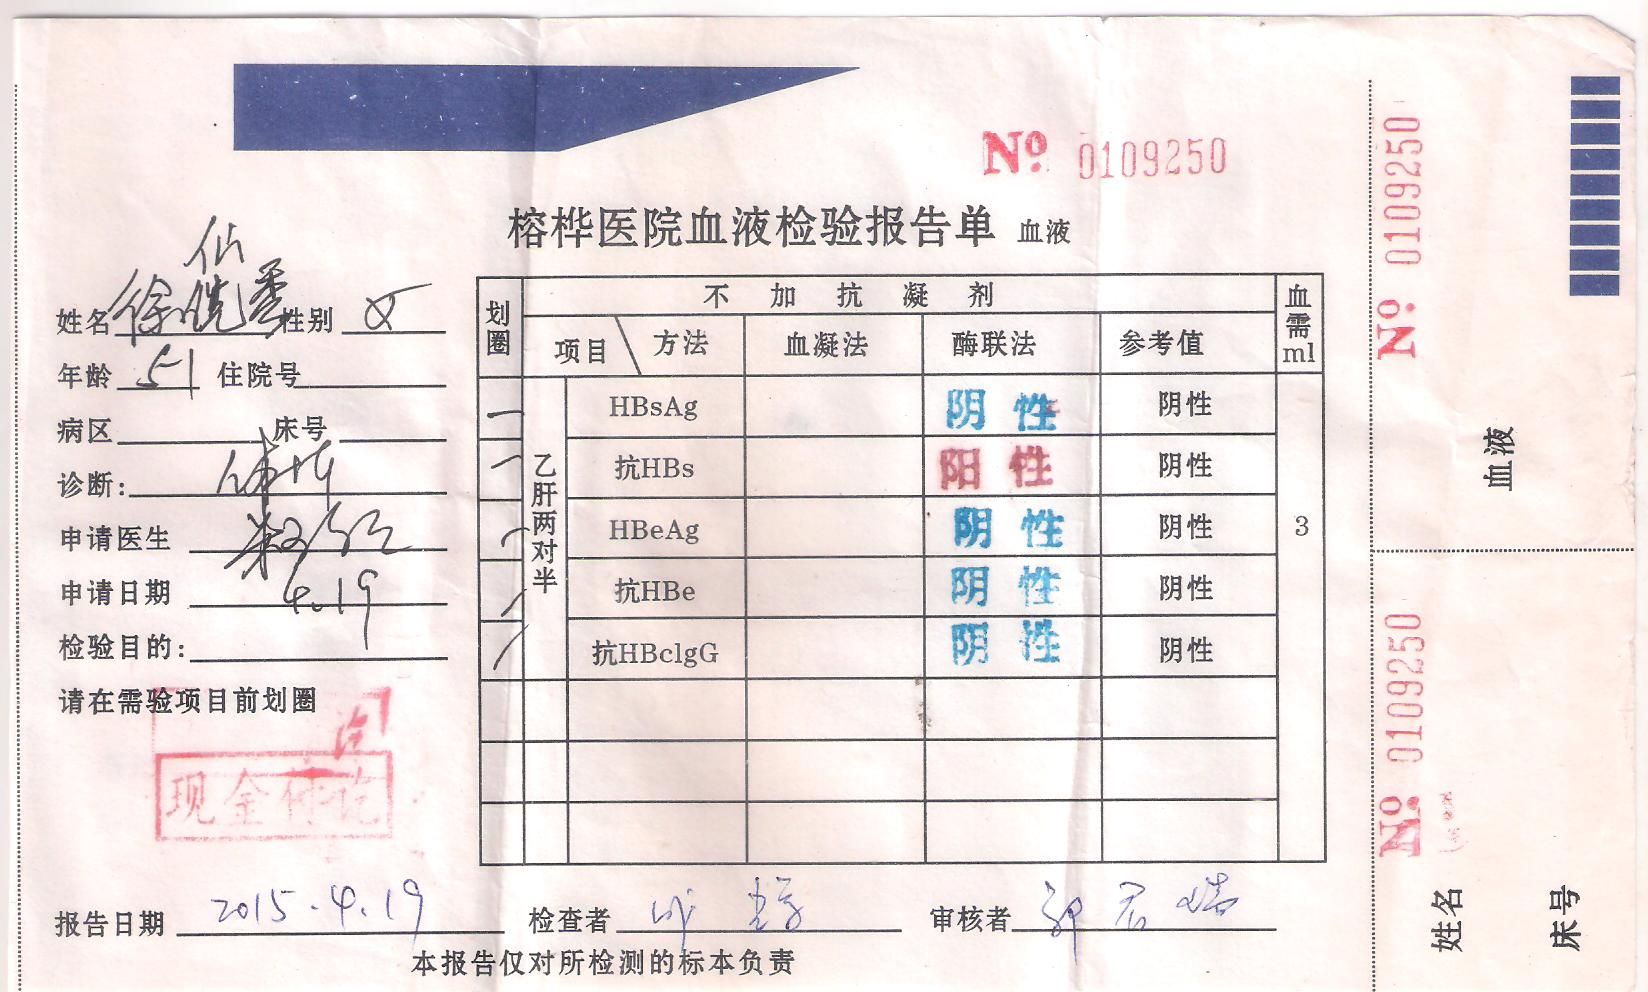 No 0109250
榕桦医院血液检验报告单 血液
仙
姓名 徐 性别 女
年龄 51 住院号
病区 床号
诊断: 体检
申请医生
申请日期 4.19
检验目的:
请在需验项目前划圈
现金付讫
划圈 不加抗凝剂 血需ml
项目 \ 方法 血凝法 酶联法 参考值
乙肝两对半
HBsAg 阴性 阴性
抗HBs 阳性 阴性
HBeAg 阴性 阴性 3
抗HBe 阴性 阴性
抗HBclgG 阴性 阴性
报告日期 2015.4.19 检查者 审核者 郭君
本报告仅对所检测的标本负责
No 0109250
血液
No 0109250
姓名
床号